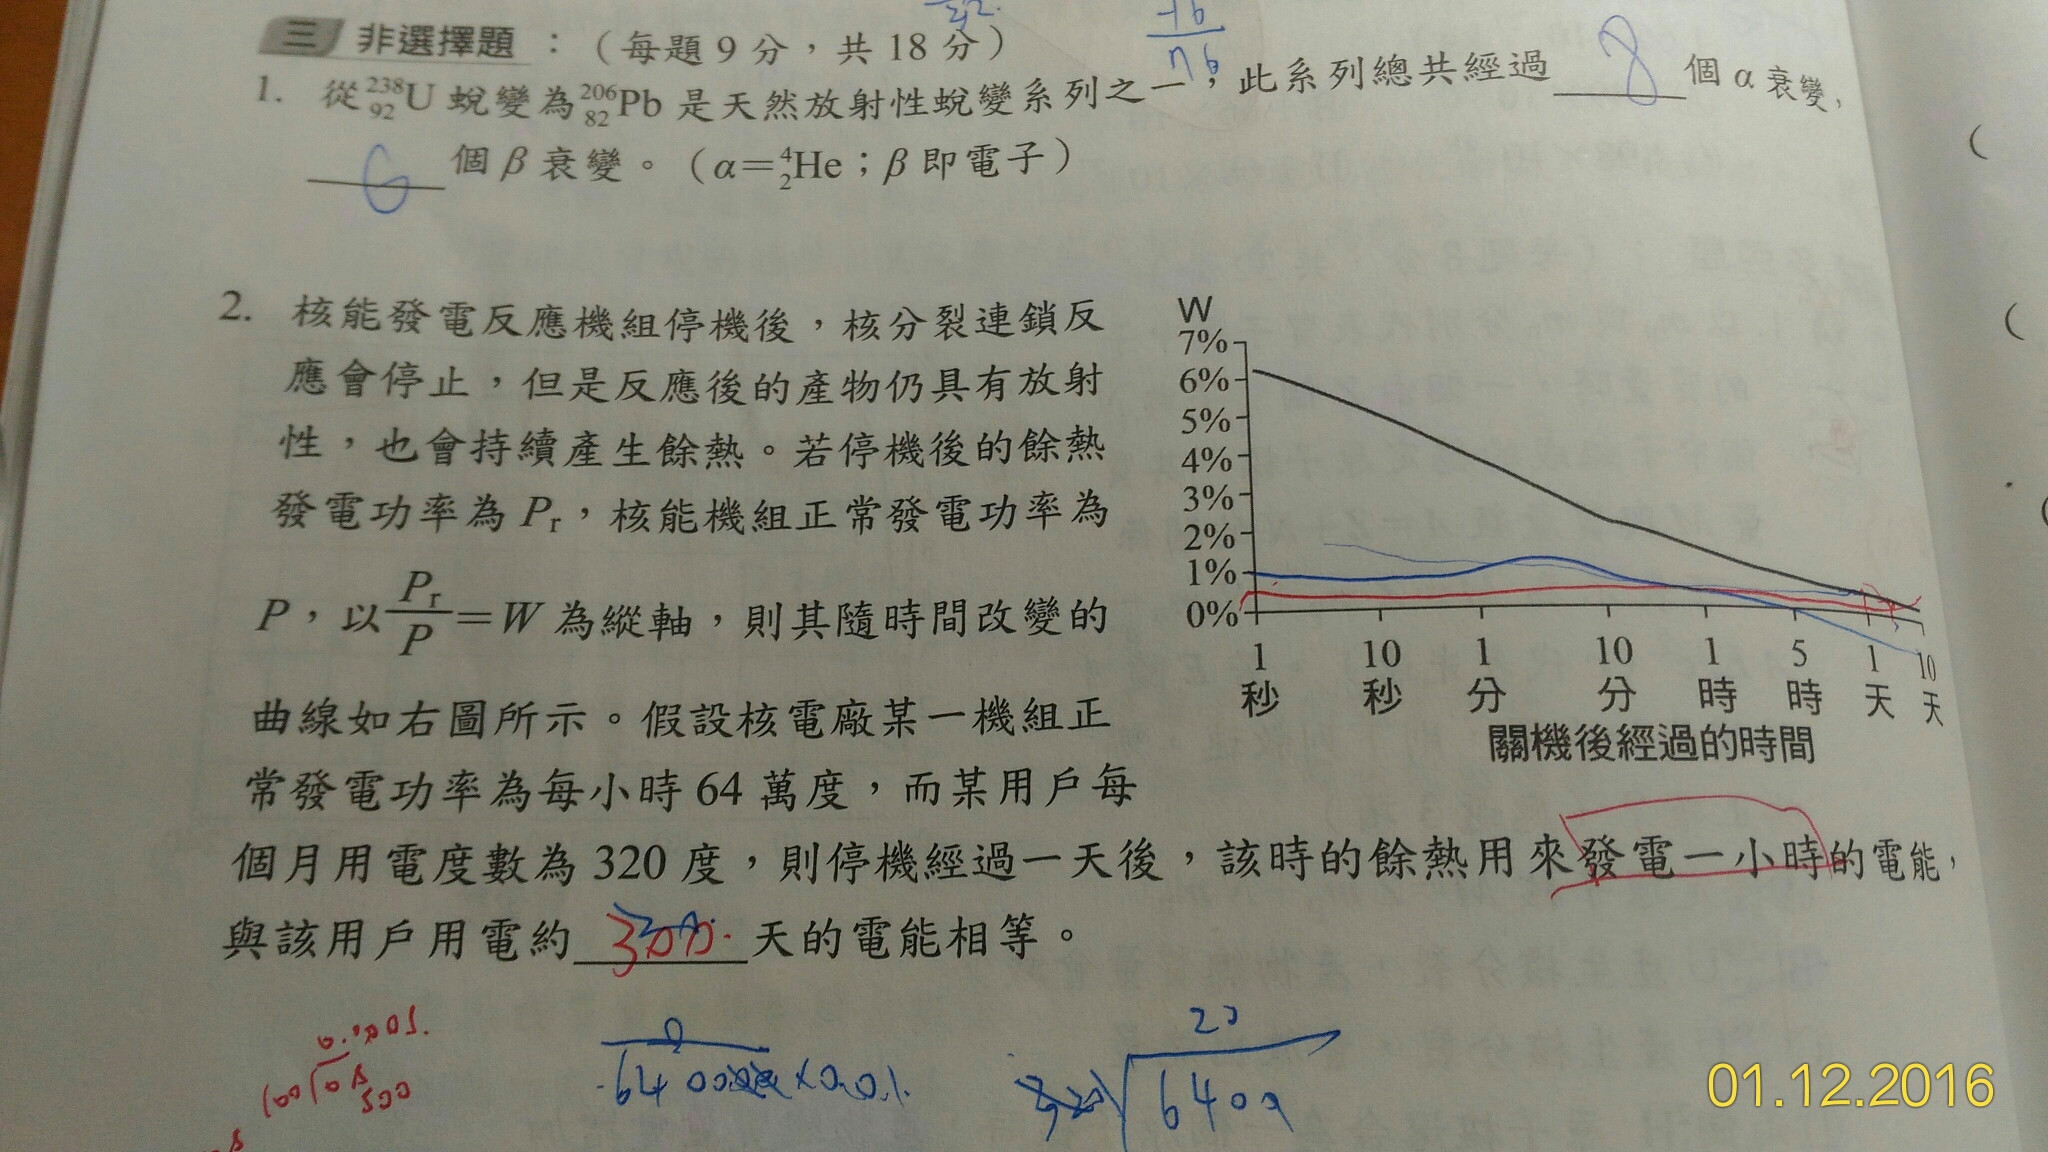 三 非選擇題：（每題 9 分，共 18 分）
1. 從 ²³⁸₉₂U 蛻變為 ²⁰⁶₈₂Pb 是天然放射性蛻變系列之一，此系列總共經過 8 個 α 衰變，
6 個 β 衰變。（α＝⁴₂He；β 即電子）
2. 核能發電反應機組停機後，核分裂連鎖反
應會停止，但是反應後的產物仍具有放射
性，也會持續產生餘熱。若停機後的餘熱
發電功率為 Pr，核能機組正常發電功率為
P，以 Pr/P＝W 為縱軸，則其隨時間改變的
曲線如右圖所示。假設核電廠某一機組正
常發電功率為每小時 64 萬度，而某用戶每
個月用電度數為 320 度，則停機經過一天後，該時的餘熱用來發電一小時的電能，
與該用戶用電約 天的電能相等。
W
7%
6%
5%
4%
3%
2%
1%
0%
1 10 1 10 1 5 1 10
秒 秒 分 分 時 時 天 天
關機後經過的時間
6400
01.12.2016